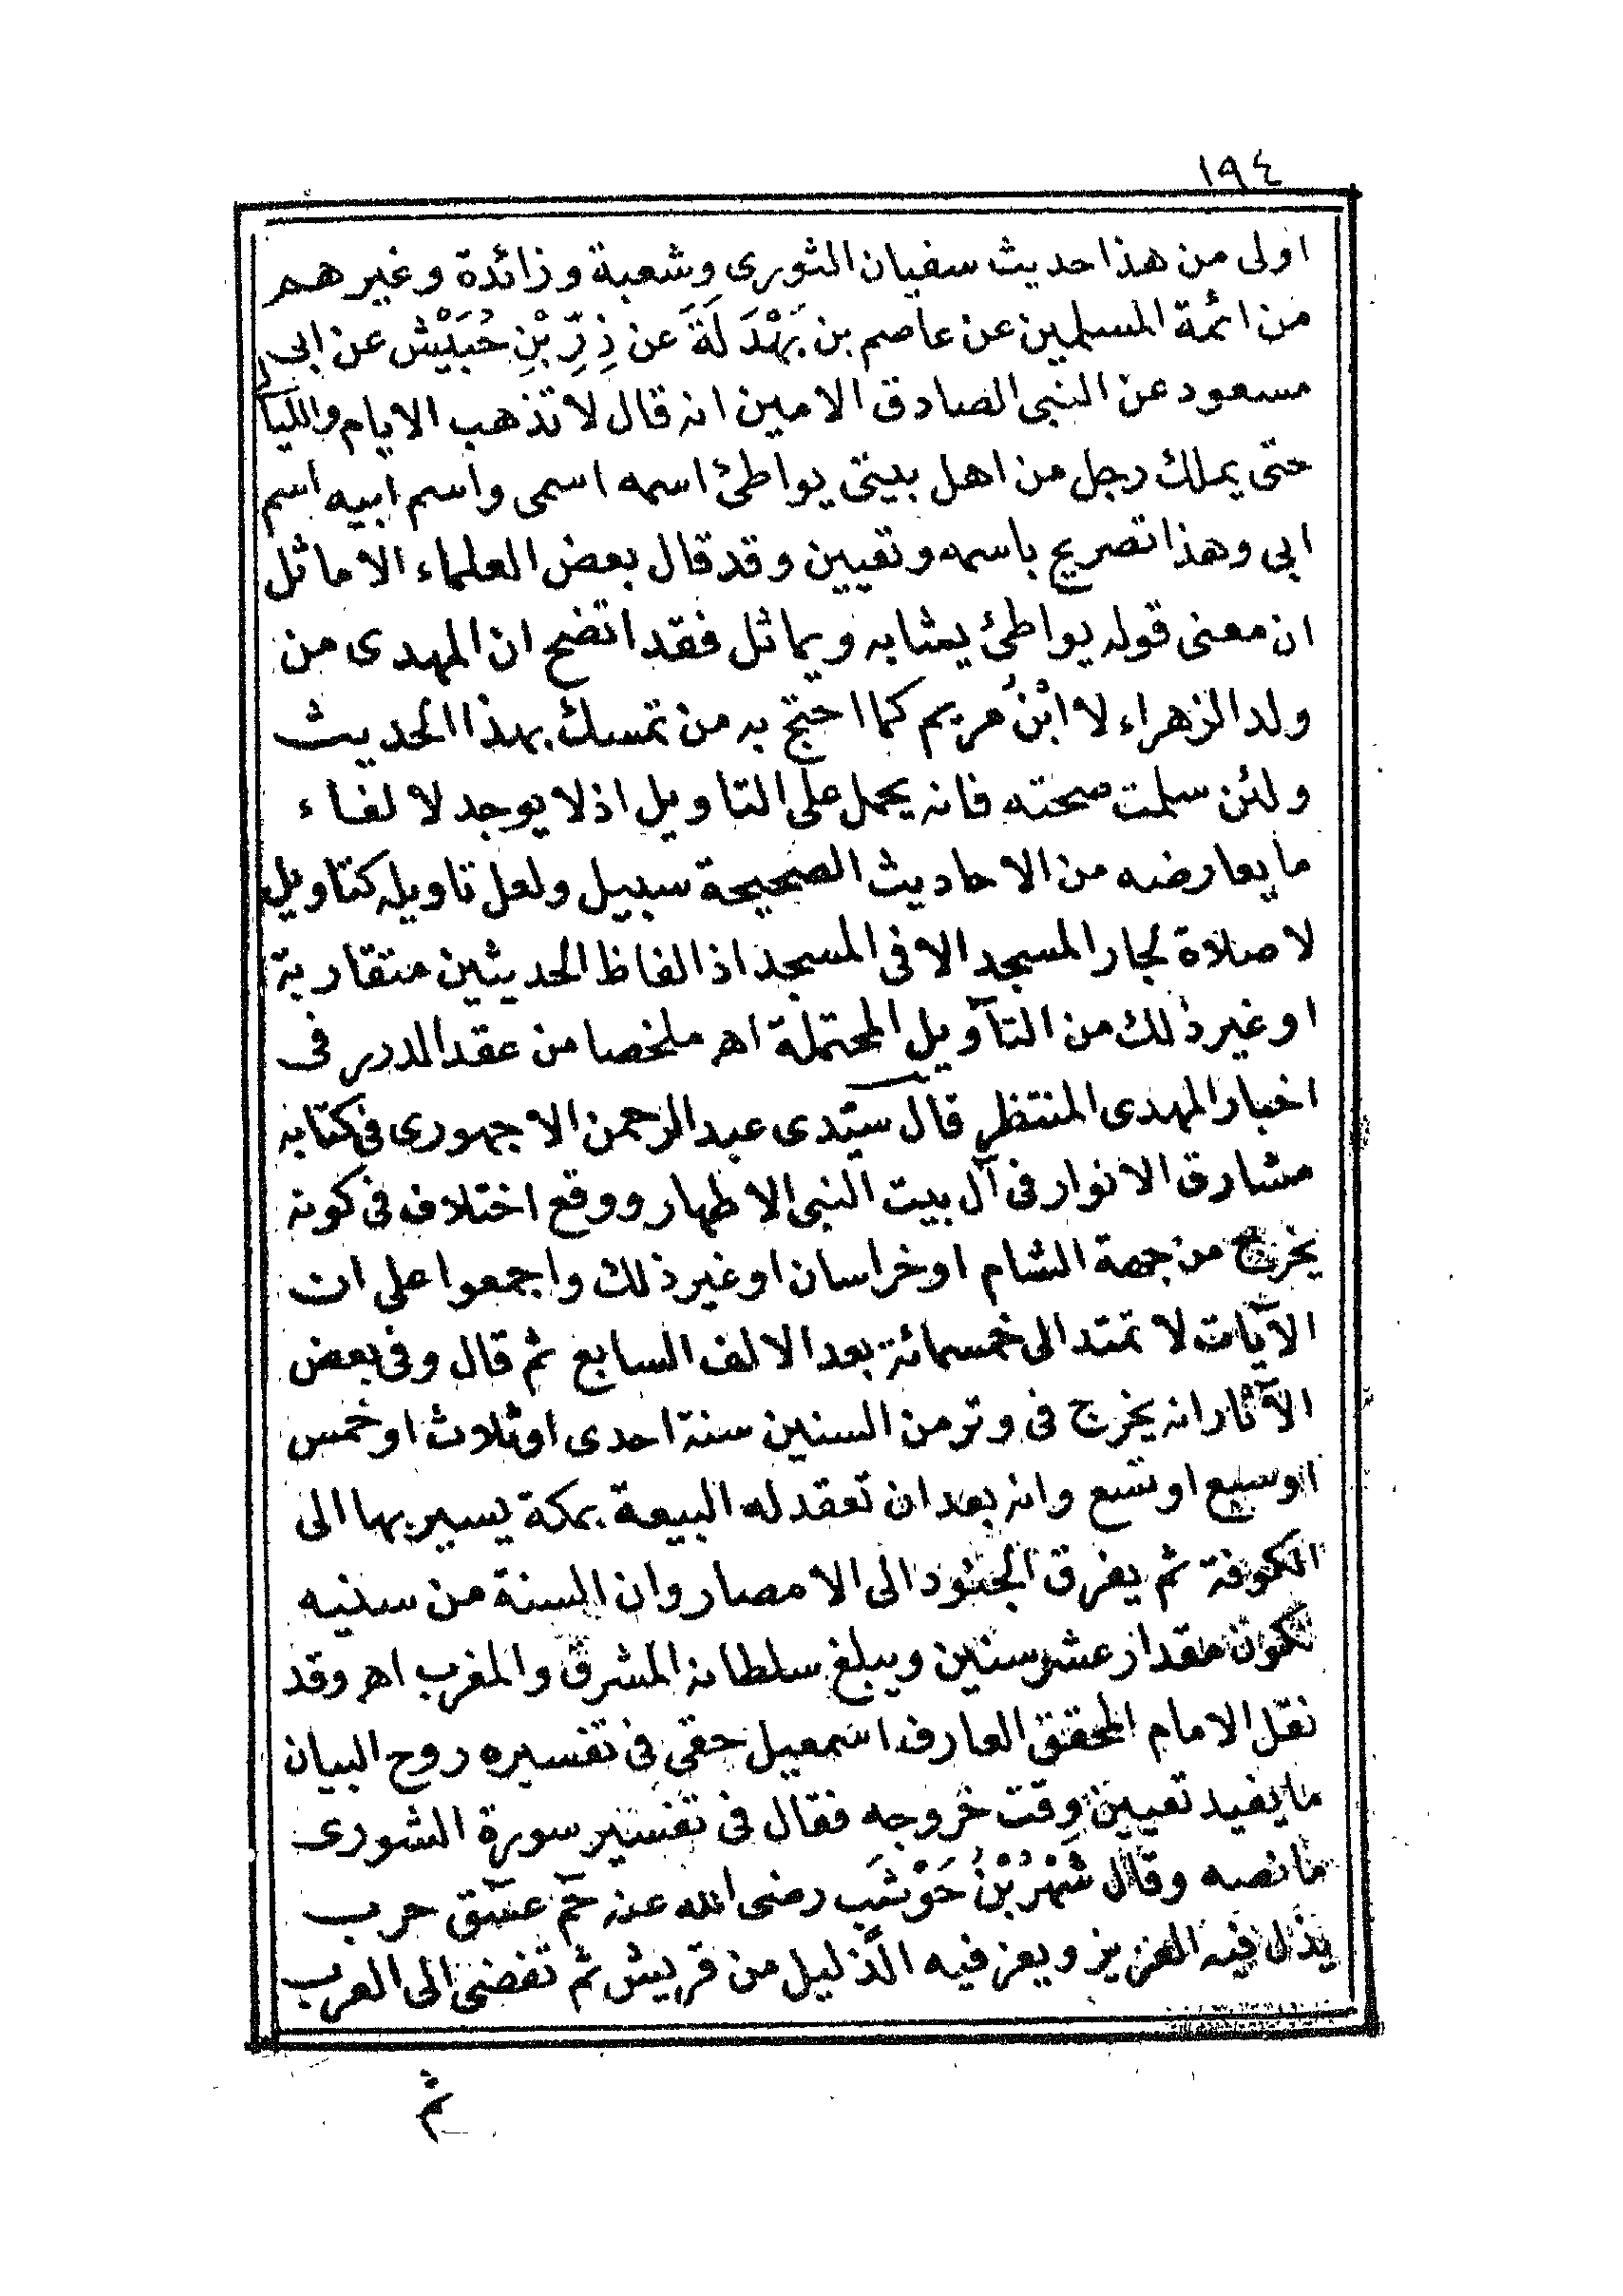 ١٩٤
اولى من هذا حديث سفيان الثورى وشعبة وزائدة وغيرهم
من ائمة المسلمين عن عاصم بن بَهْدَلَةَ عن ذِرِّ بْنِ حُبَيْش عن ابى
مسعود عن النبى الصادق الامين انه قال لا تذهب الايام والليالى
حتى يملك رجل من اهل بيتى يواطئ اسمه اسمى واسم ابيه اسم
ابى وهذا تصريح باسمه وتعيين وقد قال بعض العلماء الاماثل
ان معنى قوله يواطئ يشابه ويماثل فقد اتضح ان المهدى من
ولد الزهراء لا ابْنُ مريم كما احتج به من تمسك بهذا الحديث
ولئن سلمت صحته فانه يحمل على التاويل اذ لا يوجد لالفاء
ما يعارضه من الاحاديث الصحيحة سبيل ولعل تاويله كتاويل
لا صلاة لجار المسجد الا فى المسجد اذ الفاظ الحديثين متقاربة
او غير ذلك من التآويل المحتملة اهر ملخصا من عقد الدرر فى
اخبار المهدى المنتظر قال سيّدى عبد الرحمن الاجهورى فى كتابه
مشارق الانوار فى آل بيت النبى الاطهار ووقع اختلاف فى كونه
يخرج من جهة الشام او خراسان او غير ذلك واجمعوا على ان
الآيات لا تمتد الى خمسمائة بعد الالف السابع ثم قال وفى بعض
الآثار انه يخرج فى وتر من السنين سنة احدى او ثلاث او خمس
او سبع او تسع وانه بعد ان تعقد له البيعة بمكة يسير بها الى
الكوفة ثم يفرق الجنود الى الامصار وان السنة من سنيه
تكون مقدار عشر سنين ويبلغ سلطانه المشرق والمغرب اهر وقد
نقل الامام المحقق العارف اسمعيل حقى فى تفسيره روح البيان
ما يفيد تعيين وقت خروجه فقال فى تفسير سورة الشورى
ما نصه وقال شَهْرُ بْنُ حَوْشَب رضى الله عنه حٓمٓ عٓسٓقٓ حرب
يذل فيه العزيز ويعز فيه الذّليل من قريش ثم تفضى الى العرب
ثم